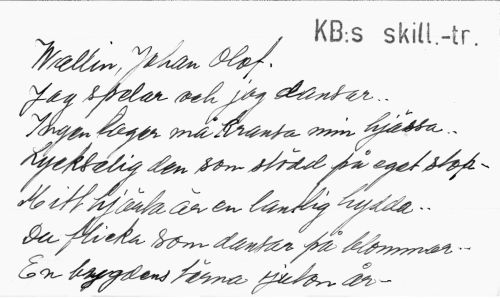 KB:s skill.-tr.
Wallin, Johan Olof.
Jag spelar och jag dansar..
Ingen lager må kransa min hjässa..
Lycksalig den som stödd på eget stop-
Mitt hjerta är en landtlig hydda..
Du flicka som dansar på blommor..
En bygdens tärna sjuton år-